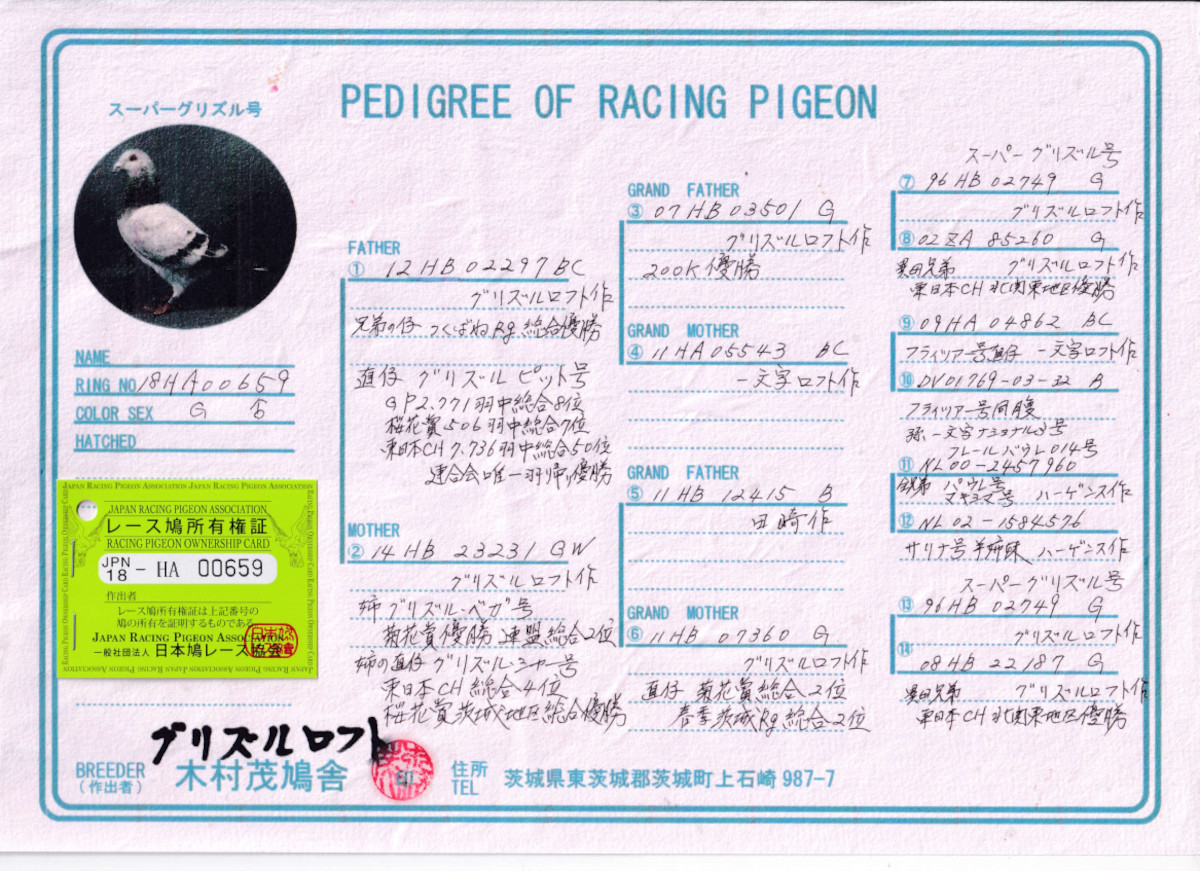 PEDIGREE OF RACING PIGEON
スーパーグリズル号
NAME
RING NO 18HA00659
COLOR SEX G ♂
HATCHED
JAPAN RACING PIGEON ASSOCIATION JAPAN RACING PIGEON ASSOCIATION
JAPAN RACING PIGEON ASSOCIATION
レース鳩所有権証
RACING PIGEON OWNERSHIP CARD
JPN
18 - HA 00659
作出者
レース鳩所有権証は上記番号の
鳩の所有を証明するものである
JAPAN RACING PIGEON ASSOCIATION
一般社団法人 日本鳩レース協会
FATHER
① 12HB02297 BC
グリズルロフト作
兄弟の仔 つくばねRg総合優勝
直仔 グリズル ピット号
GP2.771羽中総合8位
桜花賞.506羽中総合7位
東日本CH 7.736羽中総合50位
連合会唯一羽帰り優勝
MOTHER
② 14HB 23231 GW
グリズルロフト作
姉 グリズル・ベガ号
菊花賞優勝 連盟総合2位
姉の直仔 グリズル・シャー号
東日本CH 総合4位
桜花賞茨城地区総合優勝
GRAND FATHER
③ 07HB03501 G
グリズルロフト作
200K優勝
GRAND MOTHER
④ 11HA05543 BC
一文字ロフト作
GRAND FATHER
⑤ 11HB 12415 B
田崎作
GRAND MOTHER
⑥ 11HB 07360 G
グリズルロフト作
直仔 菊花賞総合2位
春季茨城Rg総合2位
スーパーグリズル号
⑦ 96HB 02749 G
グリズルロフト作
⑧ 02ZA 85260 G
異母兄弟 グリズルロフト作
東日本CH 北関東地区優勝
⑨ 09HA 04862 BC
フライツアー号直仔 一文字ロフト作
⑩ DV01769-03-32 B
フライツアー号同腹
孫.一文字ナショナル3号
フレールパウレ014号
⑪ NL00-2457960
全兄弟 パウレ号
マキシマ号 ハーゲンス作
⑫ NL 02-1584576
サリナ号半姉妹 ハーゲンス作
スーパーグリズル号
⑬ 96HB 02749 G
グリズルロフト作
⑭ 08HB 22187 G
異母兄弟 グリズルロフト作
東日本CH 北関東地区優勝
グリズルロフト
BREEDER
(作出者)
木村茂鳩舎
住所
TEL
茨城県東茨城郡茨城町上石崎987-7